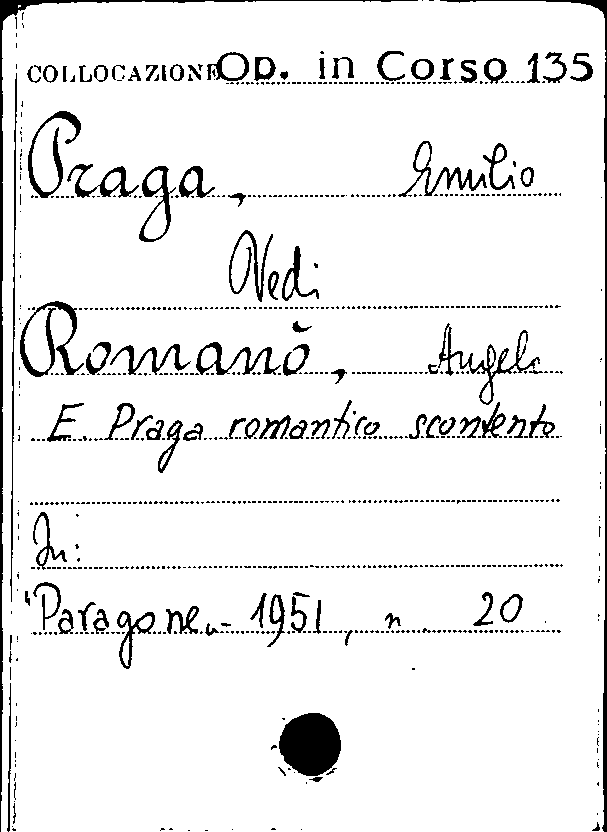 COLLOCAZIONE OP. in Corso 135
Praga, Emilio
Vedi
Romanò, Angelo
E. Praga romantico scontento
In:
"Paragone" - 1951, n. 20